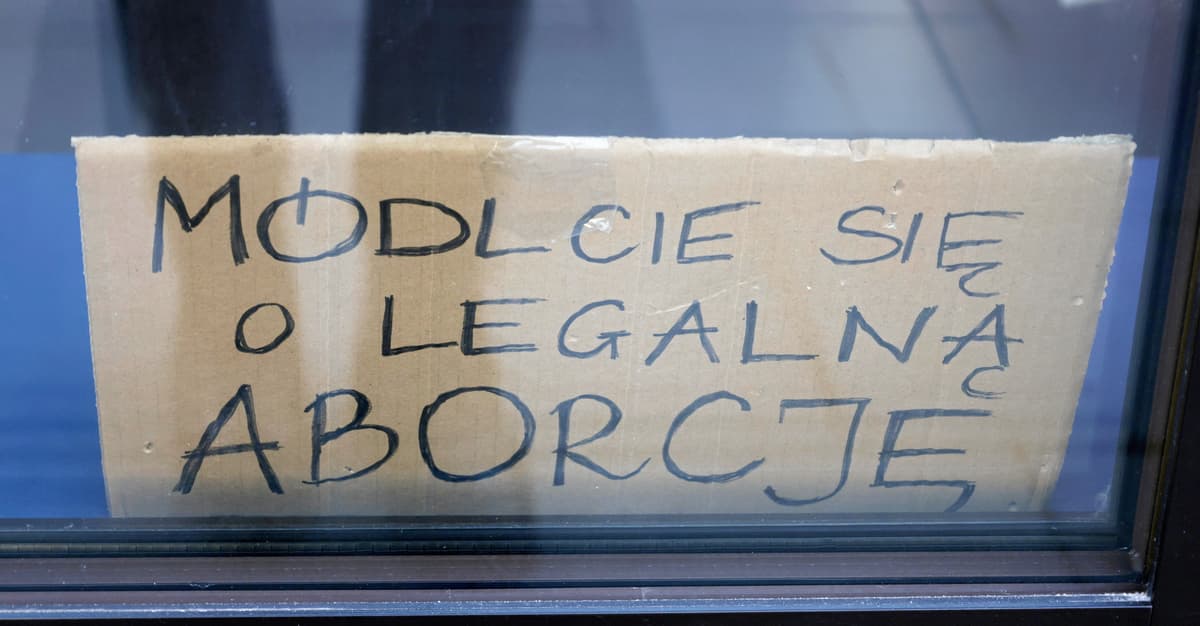 MÓDLCIE SIĘ
O LEGALNĄ
ABORCJĘ